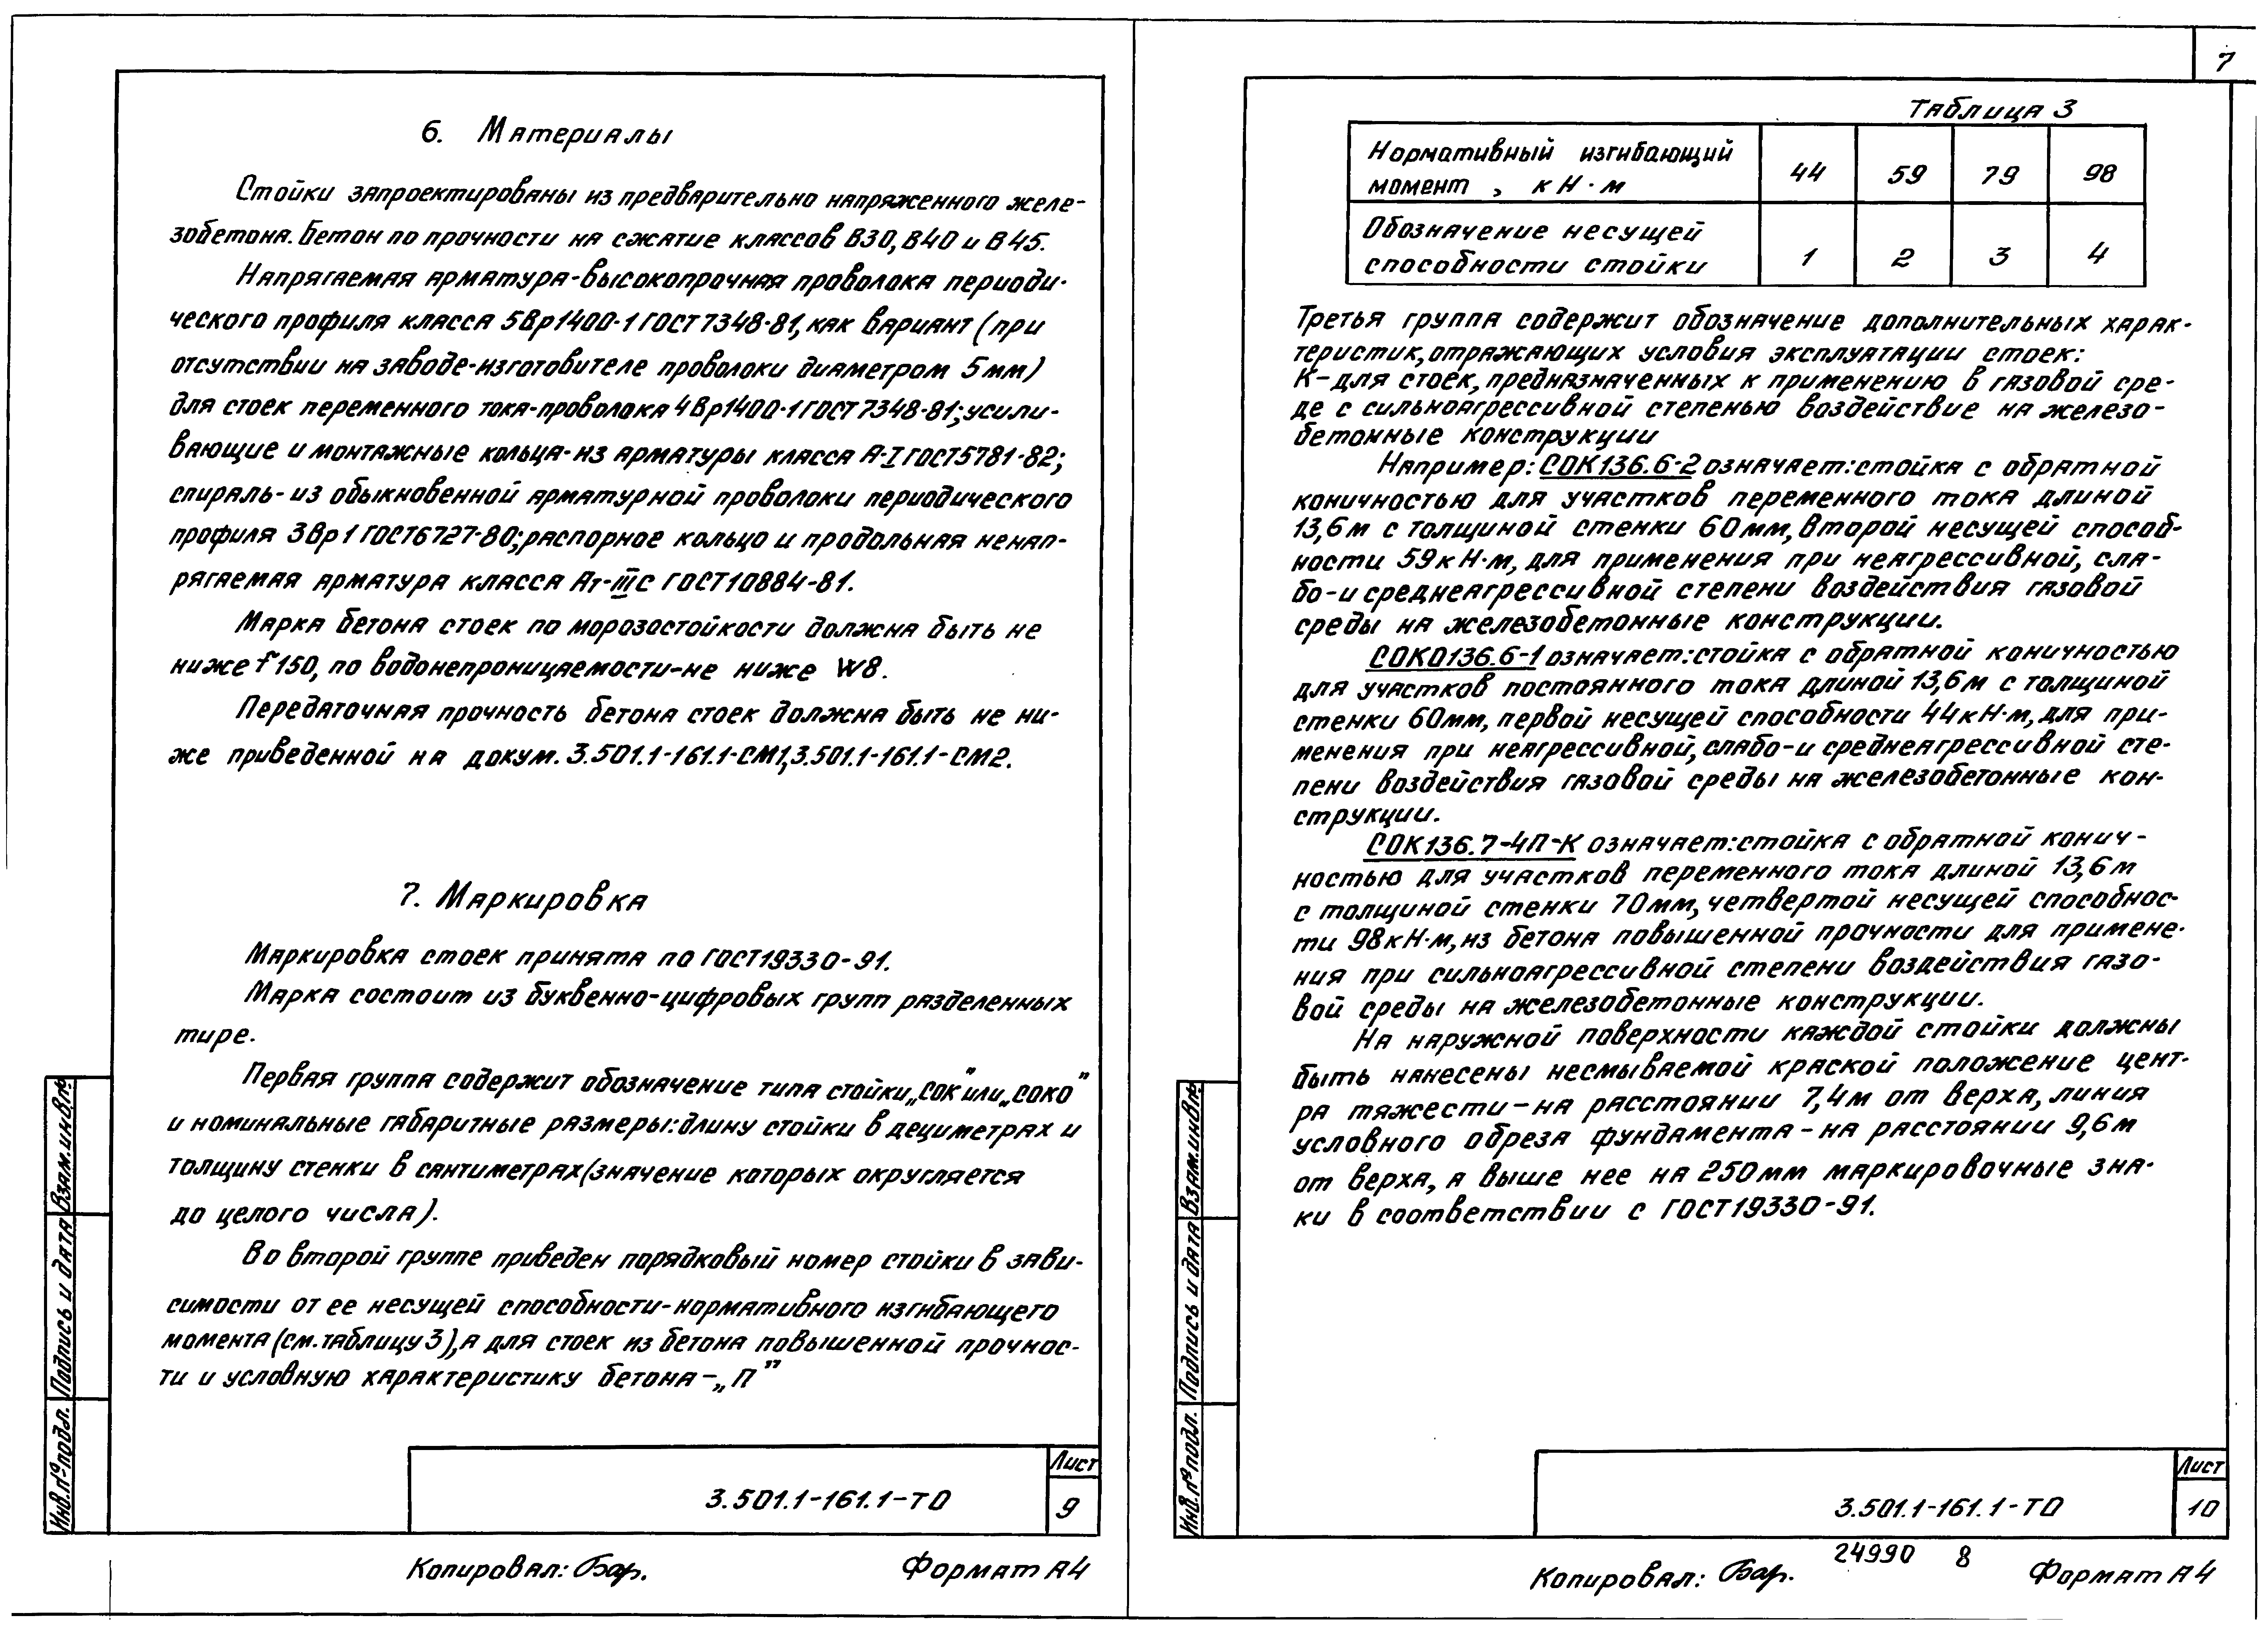 6. Материалы
Стойки запроектированы из предварительно напряженного желе-
зобетона. Бетон по прочности на сжатие классов В30, В40 и В45.
Напрягаемая арматура-высокопрочная проволока периоди-
ческого профиля класса 5Вр1400-1 ГОСТ 7348-81, как вариант (при
отсутствии на заводе-изготовителе проволоки диаметром 5мм)
для стоек переменного тока-проволока 4Вр1400-1 ГОСТ 7348-81; усили-
вающие и монтажные кольца-из арматуры класса А-I ГОСТ 5781-82;
спираль-из обыкновенной арматурной проволоки периодического
профиля 3Вр1 ГОСТ 6727-80; распорное кольцо и продольная ненап-
рягаемая арматура класса Ат-IIIс ГОСТ 10884-81.
Марка бетона стоек по морозостойкости должна быть не
ниже f150, по водонепроницаемости-не ниже W8.
Передаточная прочность бетона стоек должна быть не ни-
же приведенной на докум. 3.501.1-161.1-СМ1, 3.501.1-161.1-СМ2.
7. Маркировка
Маркировка стоек принята по ГОСТ 19330-91.
Марка состоит из буквенно-цифровых групп разделенных
тире.
Первая группа содержит обозначение типа стойки „СОК" или „СОКО"
и номинальные габаритные размеры: длину стойки в дециметрах и
толщину стенки в сантиметрах (значение которых округляется
до целого числа).
Во второй группе приведен порядковый номер стойки в зави-
симости от ее несущей способности-нормативного изгибающего
момента (см. таблицу 3), а для стоек из бетона повышенной прочнос-
ти и условную характеристику бетона-„П"
Взам.инв.№
Подпись и дата
Инв.№ подл.
3.501.1-161.1-ТО
Лист
9
Копировал: Бар.
Формат А4
7
Таблица 3
Нормативный изгибающий
момент, кН·м
44 59 79 98
Обозначение несущей
способности стойки
1 2 3 4
Третья группа содержит обозначение дополнительных харак-
теристик, отражающих условия эксплуатации стоек:
К-для стоек, предназначенных к применению в газовой сре-
де с сильноагрессивной степенью воздействие на железо-
бетонные конструкции
Например: СОК136.6-2 означает: стойка с обратной
коничностью для участков переменного тока длиной
13,6м с толщиной стенки 60мм, второй несущей способ-
ности 59кН·м, для применения при неагрессивной, сла-
бо-и среднеагрессивной степени воздействия газовой
среды на железобетонные конструкции.
СОКО136.6-1 означает: стойка с обратной коничностью
для участков постоянного тока длиной 13,6м с толщиной
стенки 60мм, первой несущей способности 44кН·м, для при-
менения при неагрессивной, слабо-и среднеагрессивной сте-
пени воздействия газовой среды на железобетонные кон-
струкции.
СОК136.7-4П-К означает: стойка с обратной конич-
ностью для участков переменного тока длиной 13,6м
с толщиной стенки 70мм, четвертой несущей способнос-
ти 98кН·м, из бетона повышенной прочности для примене-
ния при сильноагрессивной степени воздействия газо-
вой среды на железобетонные конструкции.
На наружной поверхности каждой стойки должны
быть нанесены несмываемой краской положение цент-
ра тяжести-на расстоянии 7,4м от верха, линия
условного обреза фундамента-на расстоянии 9,6м
от верха, а выше нее на 250мм маркировочные зна-
ки в соответствии с ГОСТ 19330-91.
Взам.инв.№
Подпись и дата
Инв.№ подл.
3.501.1-161.1-ТО
Лист
10
24990 8
Копировал: Бар.
Формат А4